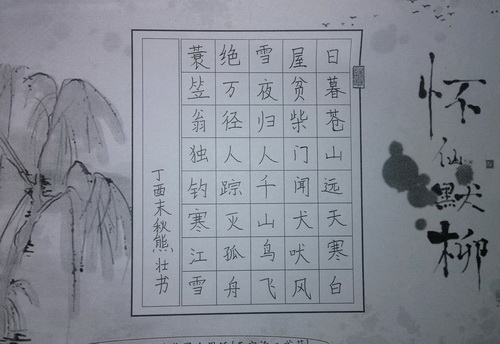 怀仙默柳
日暮苍山远天寒白
屋贫柴门闻犬吠风
雪夜归人千山鸟飞
绝万径人踪灭孤舟
蓑笠翁独钓寒江雪
丁酉末秋熊壮书